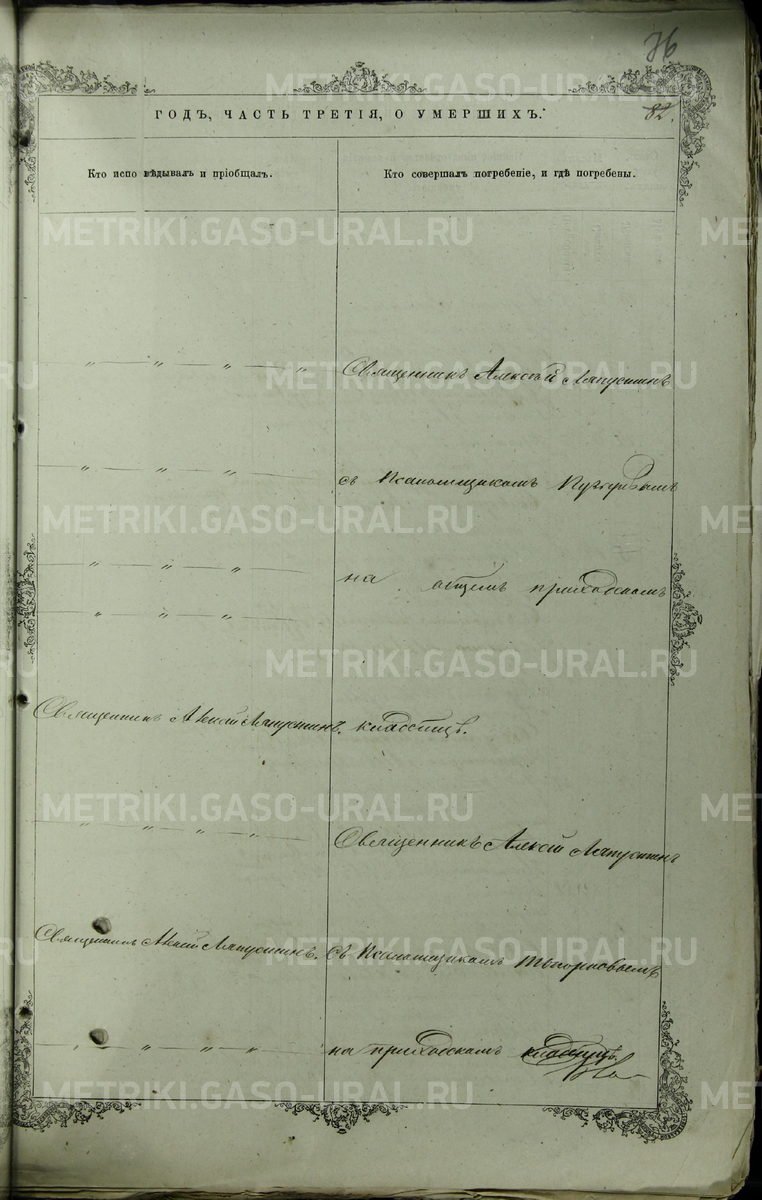 36
82.
ГОДЪ, ЧАСТЬ ТРЕТІЯ, О УМЕРШИХЪ.
Кто исповѣдывалъ и пріобщалъ.
Кто совершалъ погребеніе, и гдѣ погребены.
Священникъ Алексѣй Ляпустинъ
съ Псаломщикомъ
на общемъ приходскомъ
Священникъ Алексѣй Ляпустинъ. кладбищѣ.
Священникъ Алексѣй Ляпустинъ
Священникъ Алексѣй Ляпустинъ. съ Псаломщикомъ
на приходскомъ кладбищѣ.
METRIKI.GASO-URAL.RU